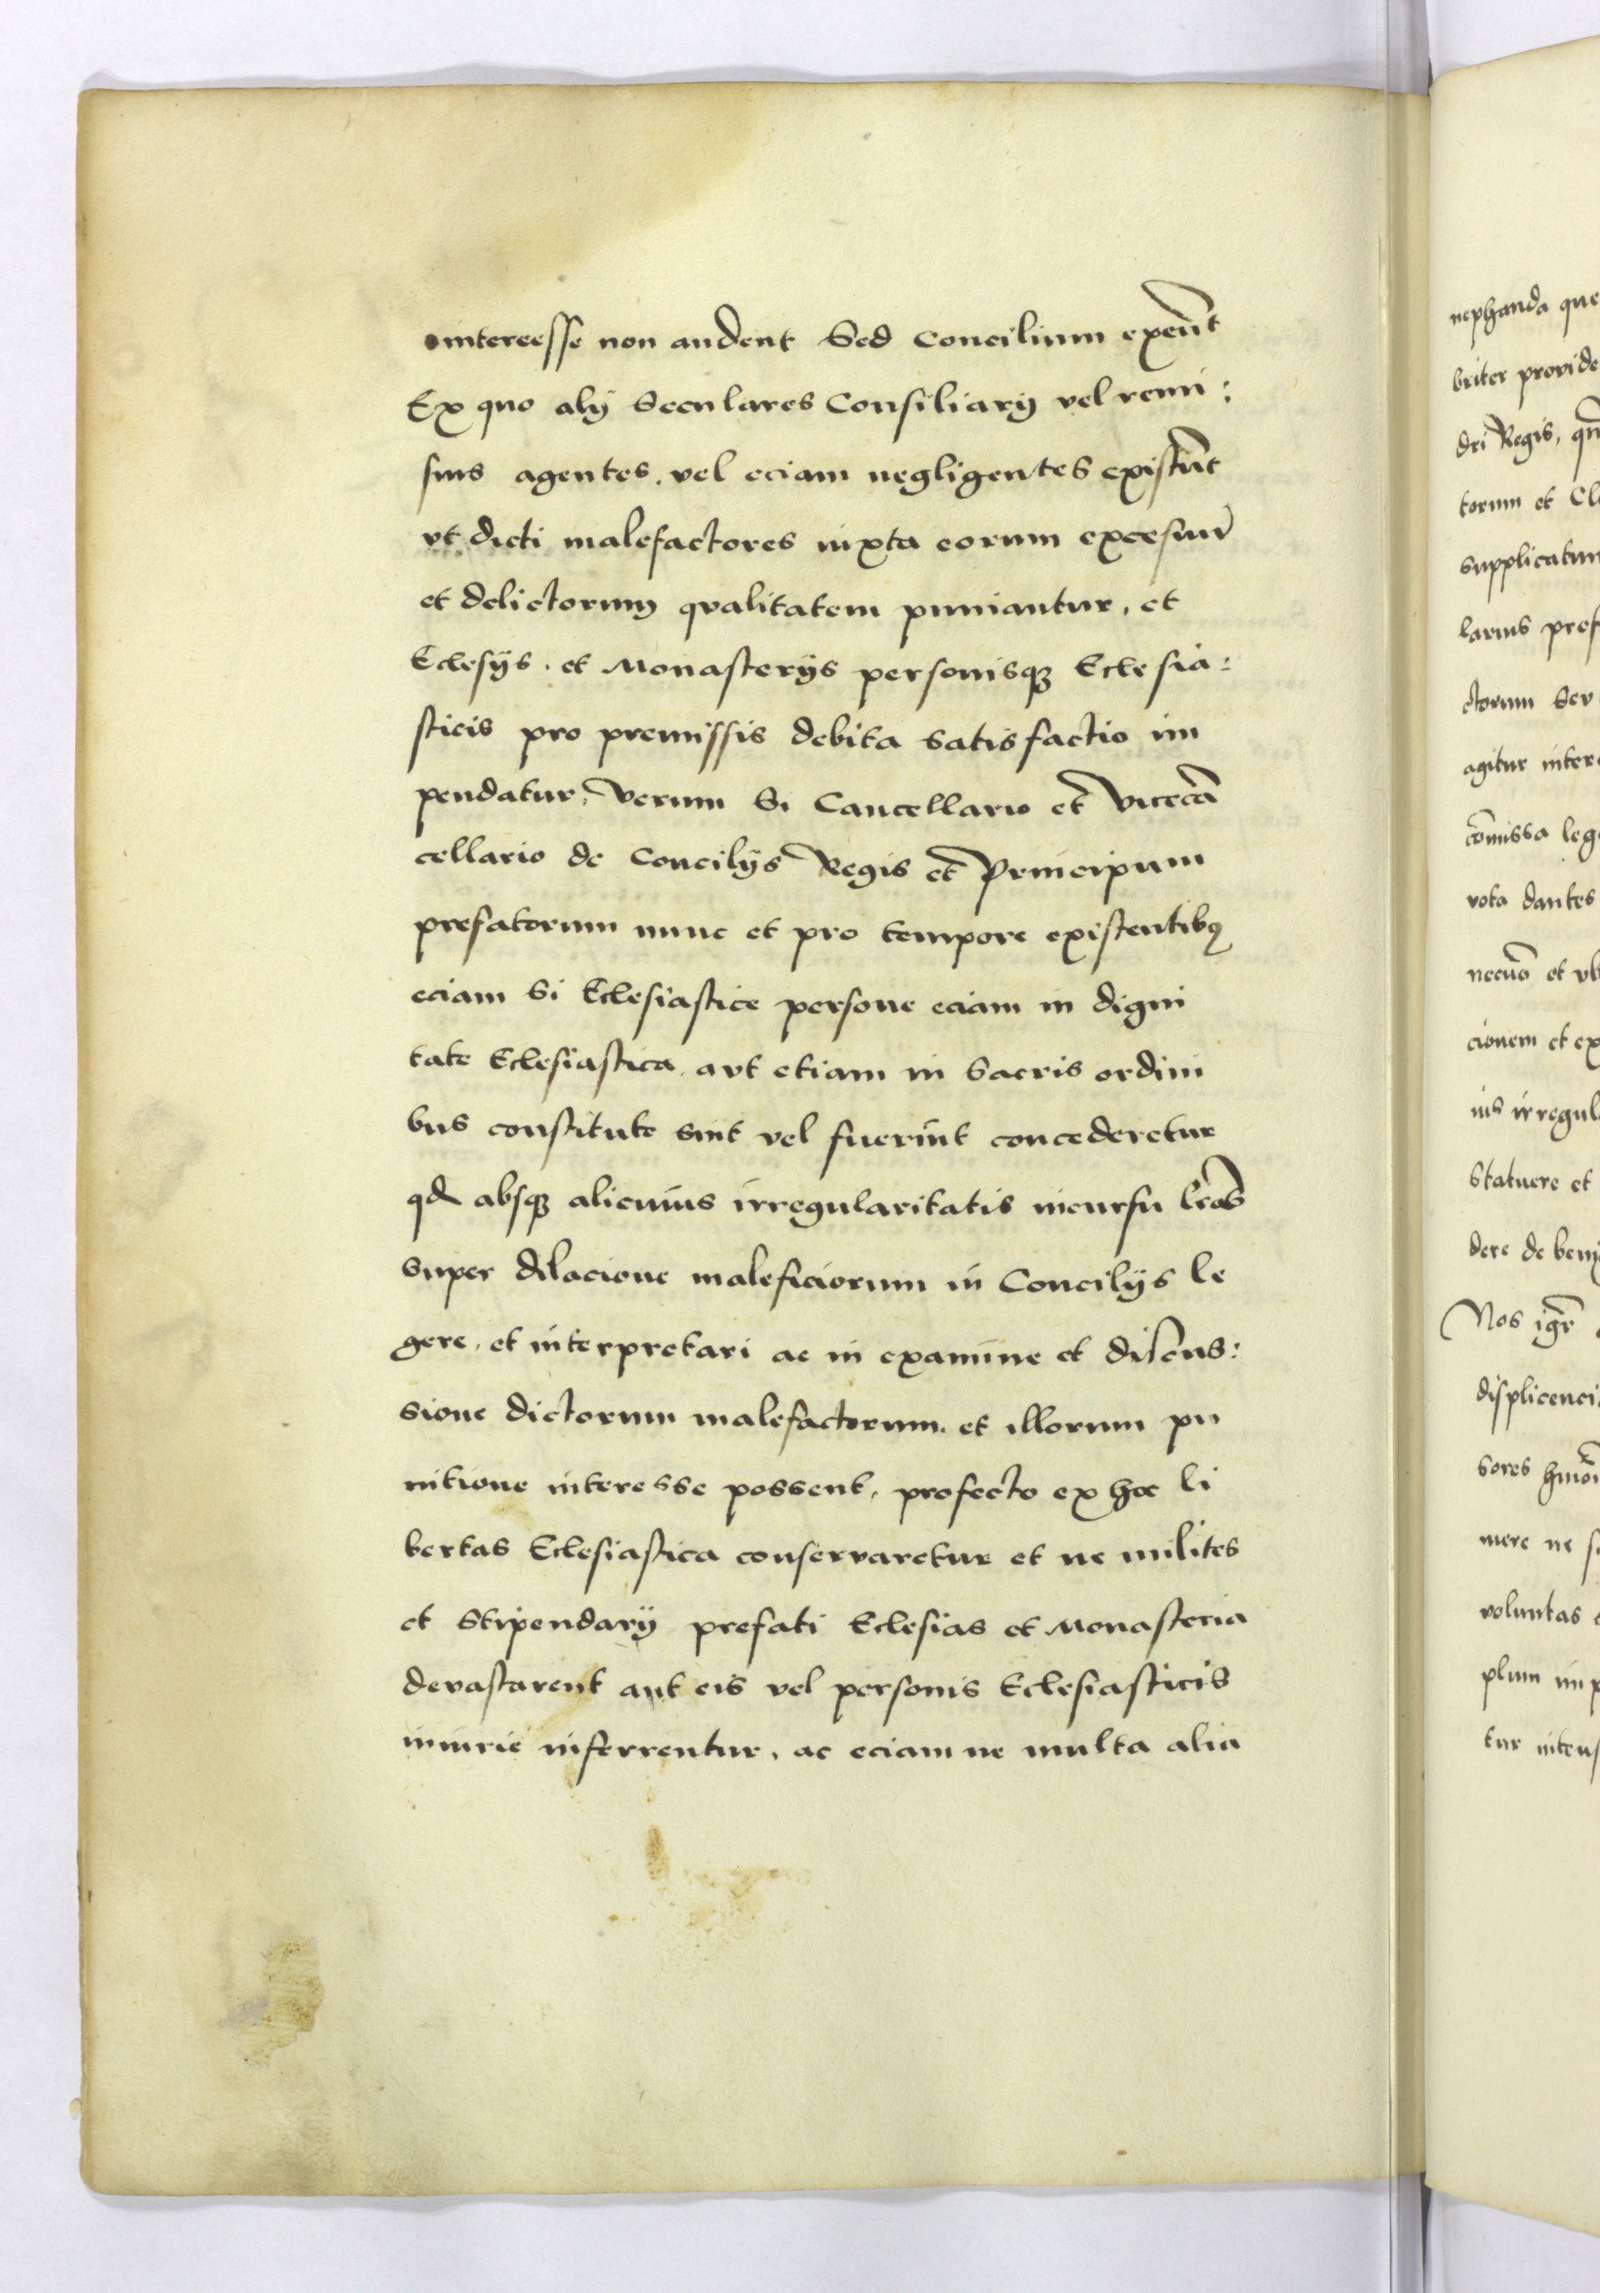 intereesse non audent Sed Concilium exeu̅t
Ex quo alÿ Seculares Consiliarÿ vel remi:
sius agentes, vel eciam negligentes existu̅t
vt dicti malefactores iuxta eorum excesuu̅
et delictorum qvalitatem puniantur, et
Eclesÿs, et Monasterÿs personisqꝫ Eclesia:
sticis pro premissis debita satisfactio im
pendatur, Verum Si Cancellario et Viceca̅
cellario de Concilÿs Regis et Principum
prefatorum nunc et pro tempore existentibꝯ
eciam Si Eclesiastice persone eciam in digni
tate Eclesiastica avt etiam in Sacris ordini
bus constitute sint vel fuerint concederetur
qd absqꝫ alicuius irregularitatis incursu l̅ras
super dilacione maleficiorum in Concilÿs le
gere, et interpretari ac in examine et discus:
sione dictorum malefactorum, et illorum pu
nitione interesse possent, profecto ex hoc li
bertas Eclesiastica conservaretur et ne milites
et Stipendarÿ prefati Eclesias et Monasteria
devastarent aut eis vel personis Eclesiasticis
iniurie inferrentur, ac eciam ne multa alia
nephanda que
briter provide
dri Regis,
torum et
supplicatum
larius pref
ctorum Ser
agitur inter
co̅missa leg
vota dantes
necno̅ et vb
cionem et ex
nis irregul
Statuere et
dere de beni
Nos igr̅
displicenci
sores hmo̅i
mere ne
voluntas
plum imp
tur intens